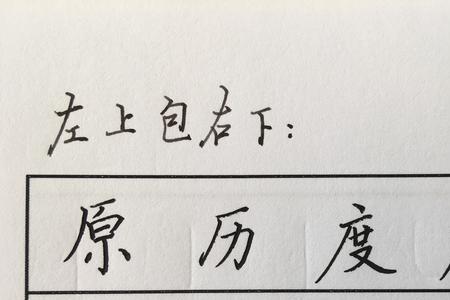 左上包右下:
原 历 度